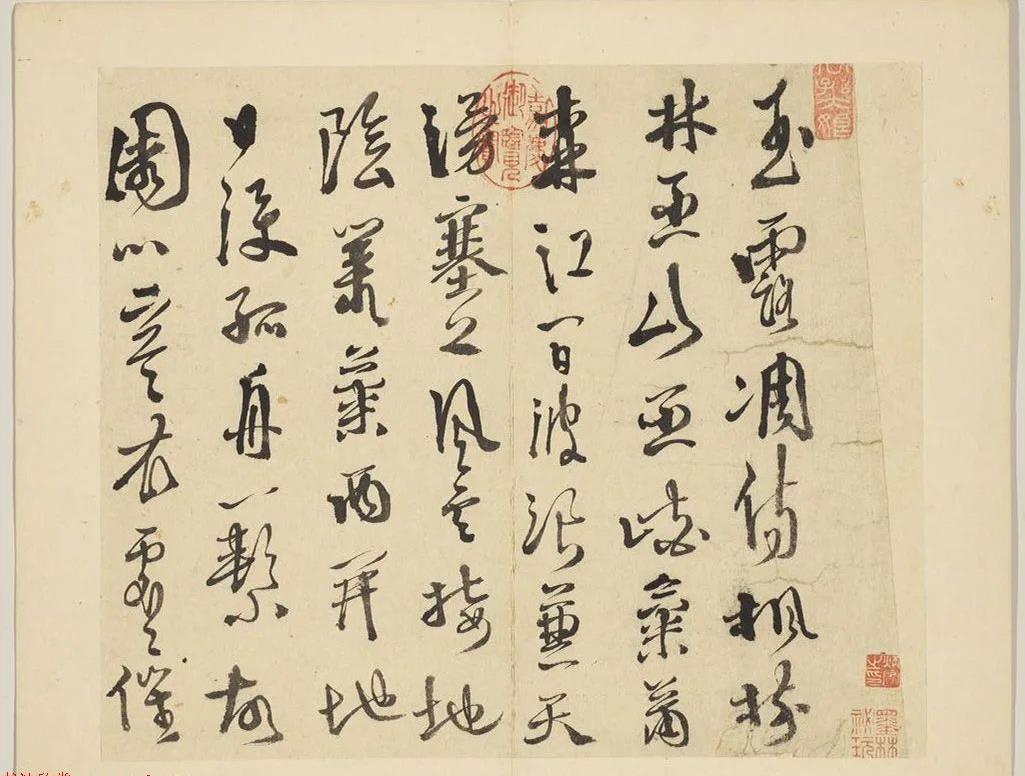 玉露凋傷楓樹
林巫山巫峽氣蕭
森江間波浪兼天
湧塞上風雲接地
陰叢菊兩开地
日淚孤舟一繫故
園心寒衣處〻催
嘉慶御覽之寶
墨林祕玩